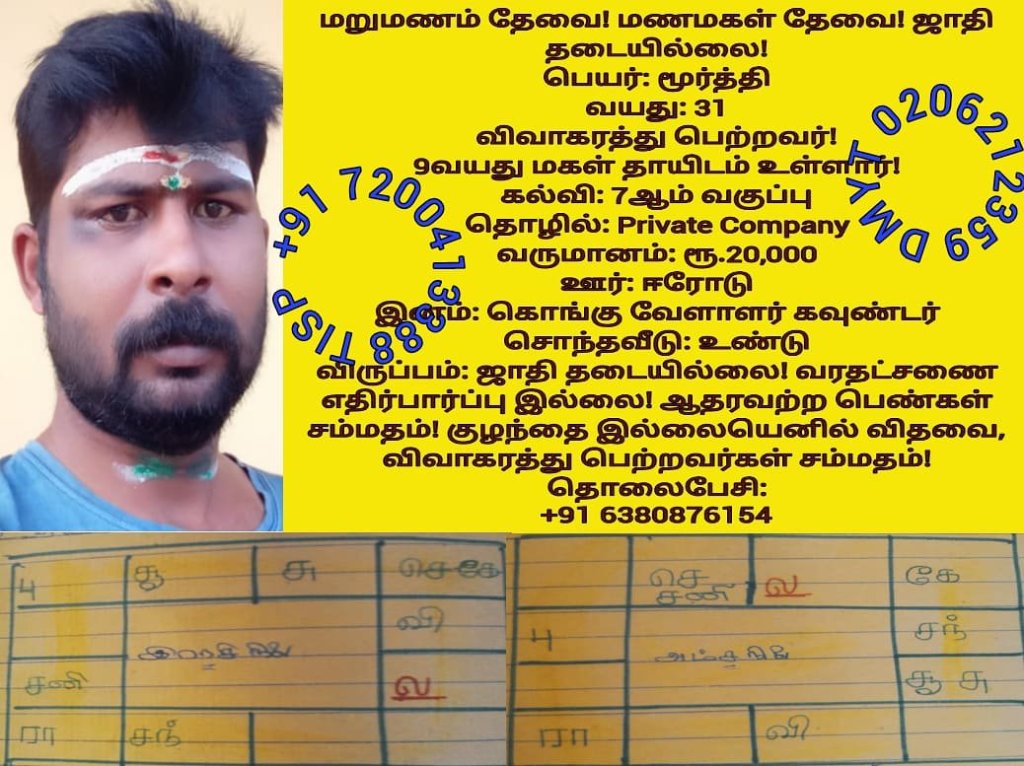 மறுமணம் தேவை! மணமகள் தேவை! ஜாதி
தடையில்லை!
பெயர்: மூர்த்தி
வயது: 31
விவாகரத்து பெற்றவர்!
9வயது மகள் தாயிடம் உள்ளார்!
கல்வி: 7ஆம் வகுப்பு
தொழில்: Private Company
வருமானம்: ரூ.20,000
ஊர்: ஈரோடு
இனம்: கொங்கு வேளாளர் கவுண்டர்
சொந்தவீடு: உண்டு
விருப்பம்: ஜாதி தடையில்லை! வரதட்சணை
எதிர்பார்ப்பு இல்லை! ஆதரவற்ற பெண்கள்
சம்மதம்! குழந்தை இல்லையெனில் விதவை,
விவாகரத்து பெற்றவர்கள் சம்மதம்!
தொலைபேசி:
+91 6380876154
TISP +91 7200413388
DMY T 0206212359
பு சூ சு செ கே
வி
இராசி
சனி ல
ரா சந்
செ ல கே
சனி
பு சந்
அம்சம்
சூ சு
ரா வி